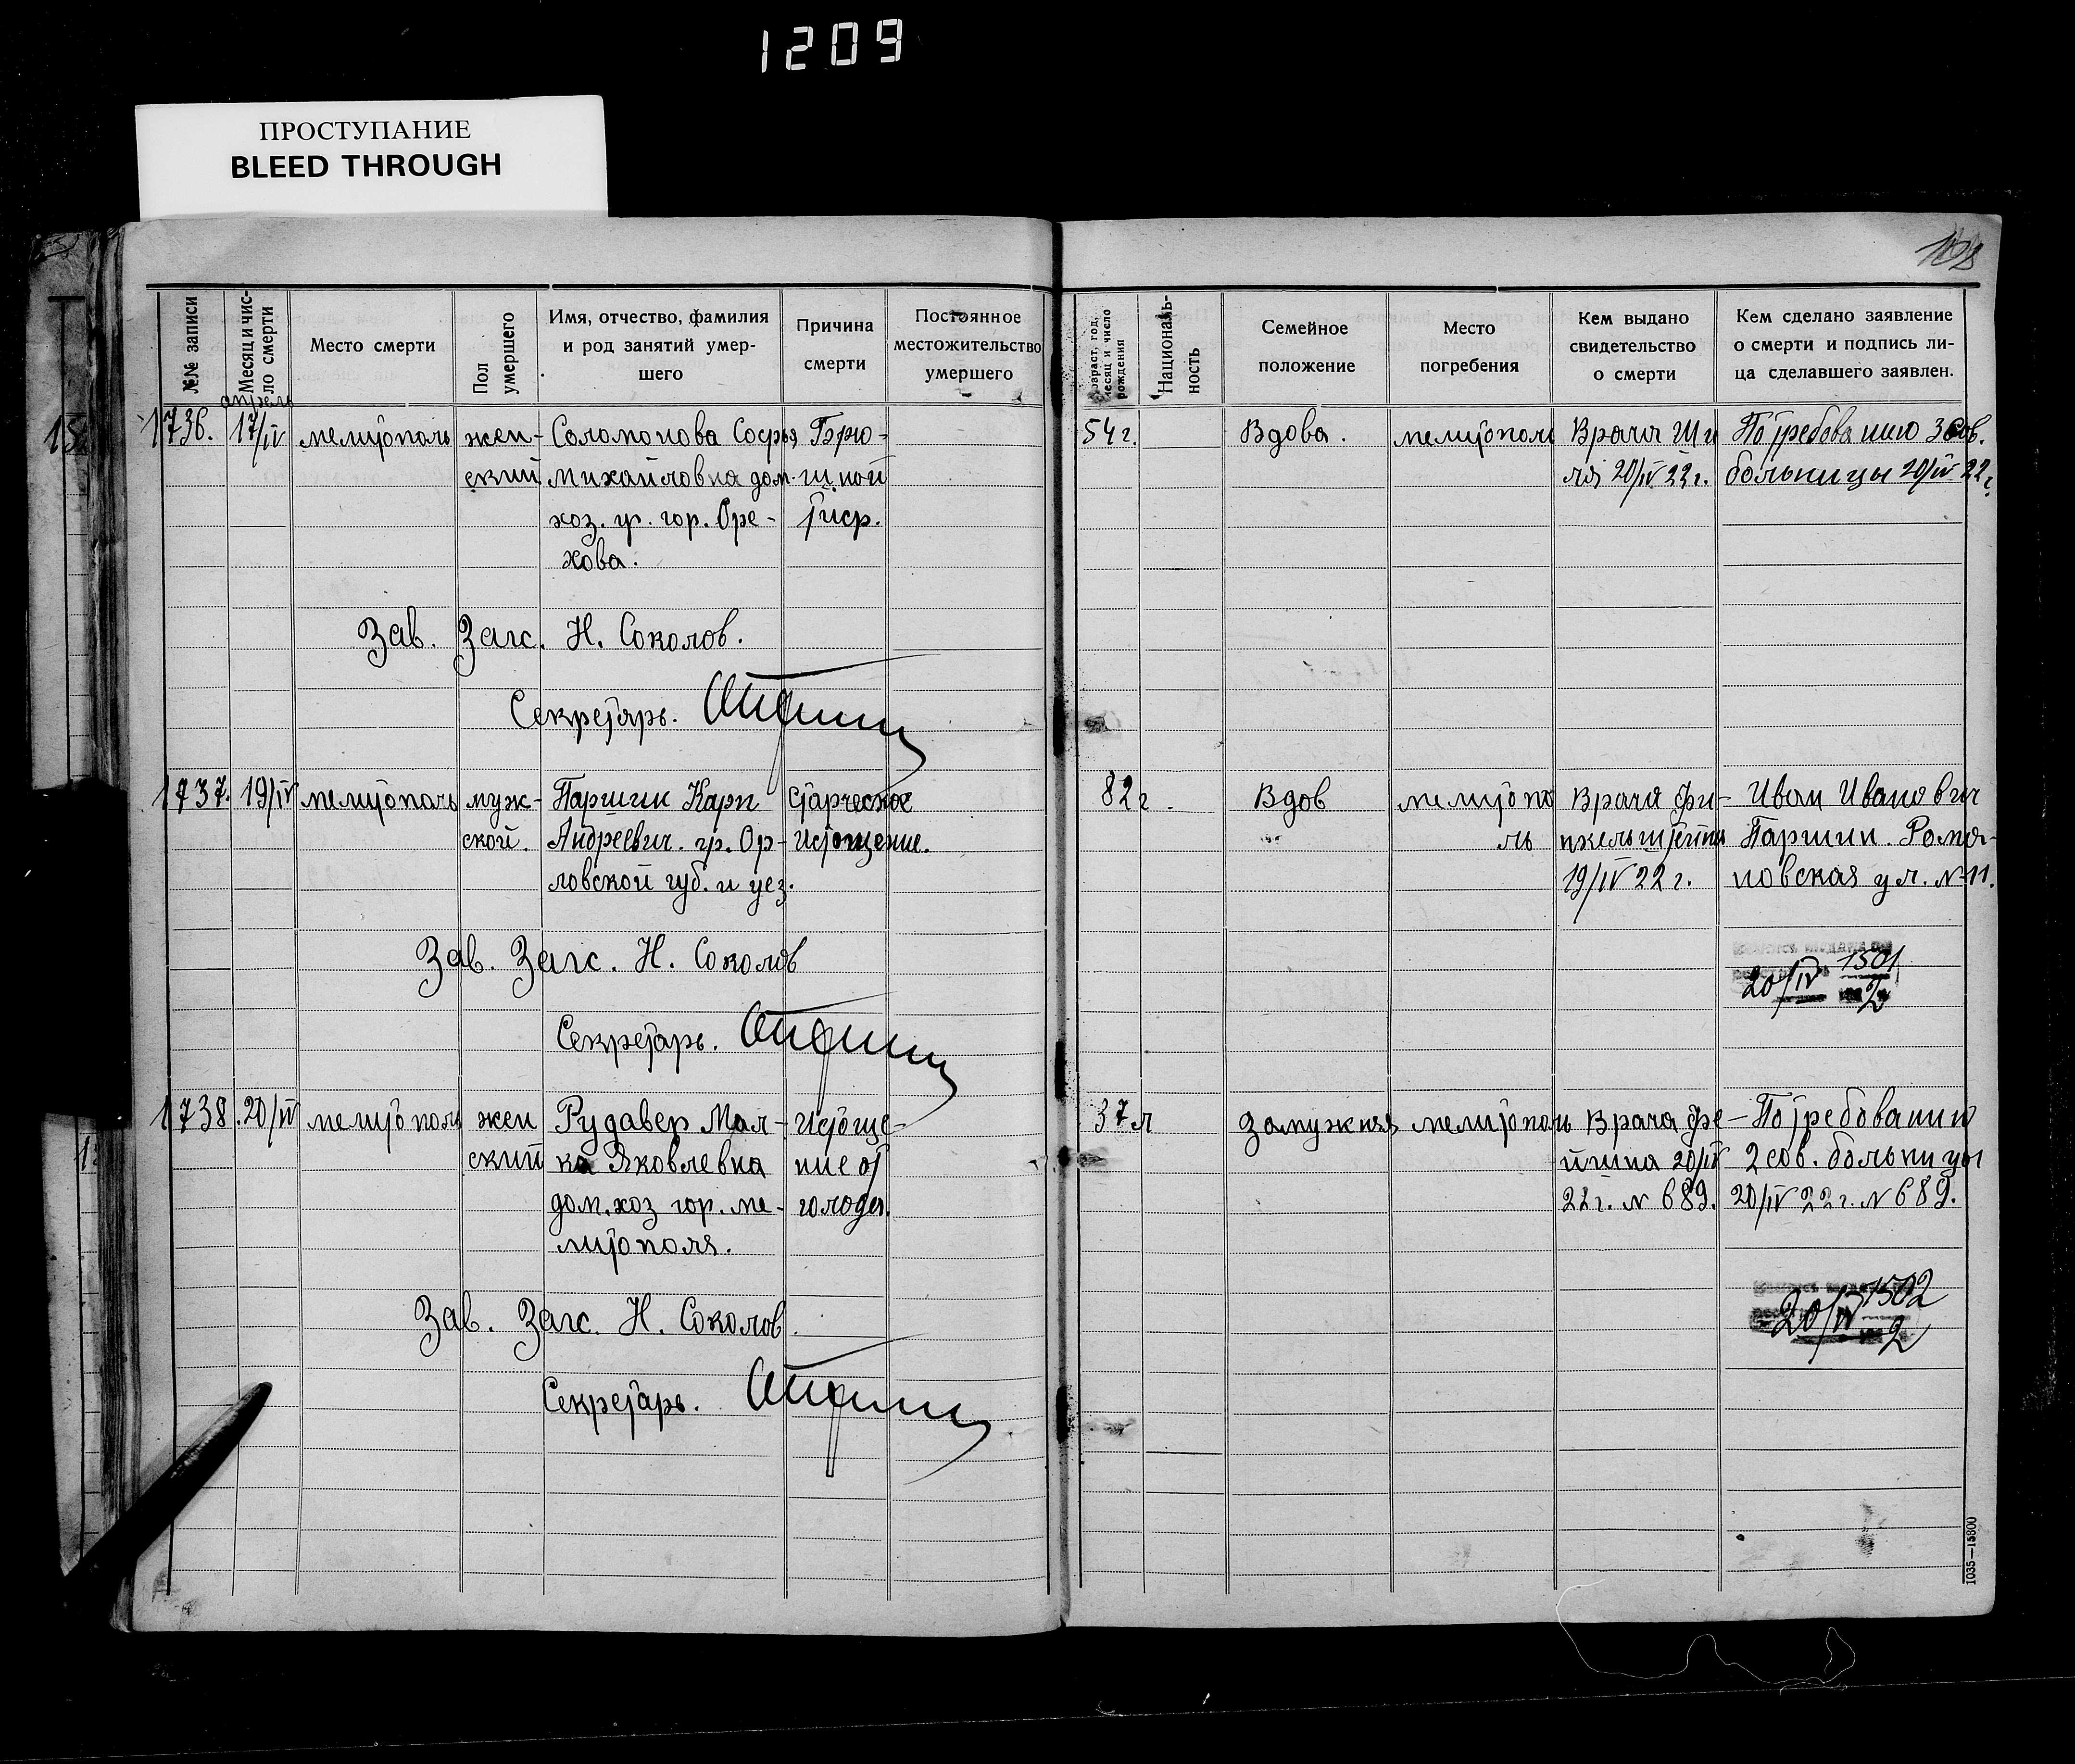 1209
ПРОСТУПАНИЕ
BLEED THROUGH
№№ записи
Месяц и чис-
ло смерти
Место смерти
Пол
умершего
Имя, отчество, фамилия
и род занятий умер-
шего
Причина
смерти
Постоянное
местожительство
умершего
Возраст, год,
месяц и число
рождения
Националь-
ность
Семейное
положение
Место
погребения
Кем выдано
свидетельство
о смерти
Кем сделано заявление
о смерти и подпись ли-
ца сделавшего заявлен.
апрель
1736. 17/IV мелитополь жен- Соломонова Софья Брю- 54 г. Вдова. мелитополь Врача По требованию 3 сов.
ский Михайловна дом. шной 20/IV 22 г. больницы 20/IV 22 г.
хоз. гр. гор. Оре- тиф.
хова.
Зав. Загс. Н. Соколов.
Секретарь.
1737. 19/IV мелитополь муж- Паршин Карп старческое 82 г. Вдов мелитопо Врача Фи- Иван Иванович
ской. Андреевич. гр. Ор- истощение. ль нкельштейна Паршин. Рома-
ловской губ. и уез. 19/IV 22 г. новская ул. № 11.
Зав. Загс. Н. Соколов
20/IV 1501
2
Секретарь.
1738. 20/IV мелитополь жен Рудавер Мал- Истоще- 37 л замужняя мелитополь Врача Фе- По требованию
ский ка Яковлевна ние от йгина 20/IV 2 сов. больницы
дом. хоз гор. ме- голода. 22 г. № 689. 20/IV 22 г. № 689.
литополя.
Зав. Загс. Н. Соколов.
20/IV 1502
2
Секретарь.
1035—15800